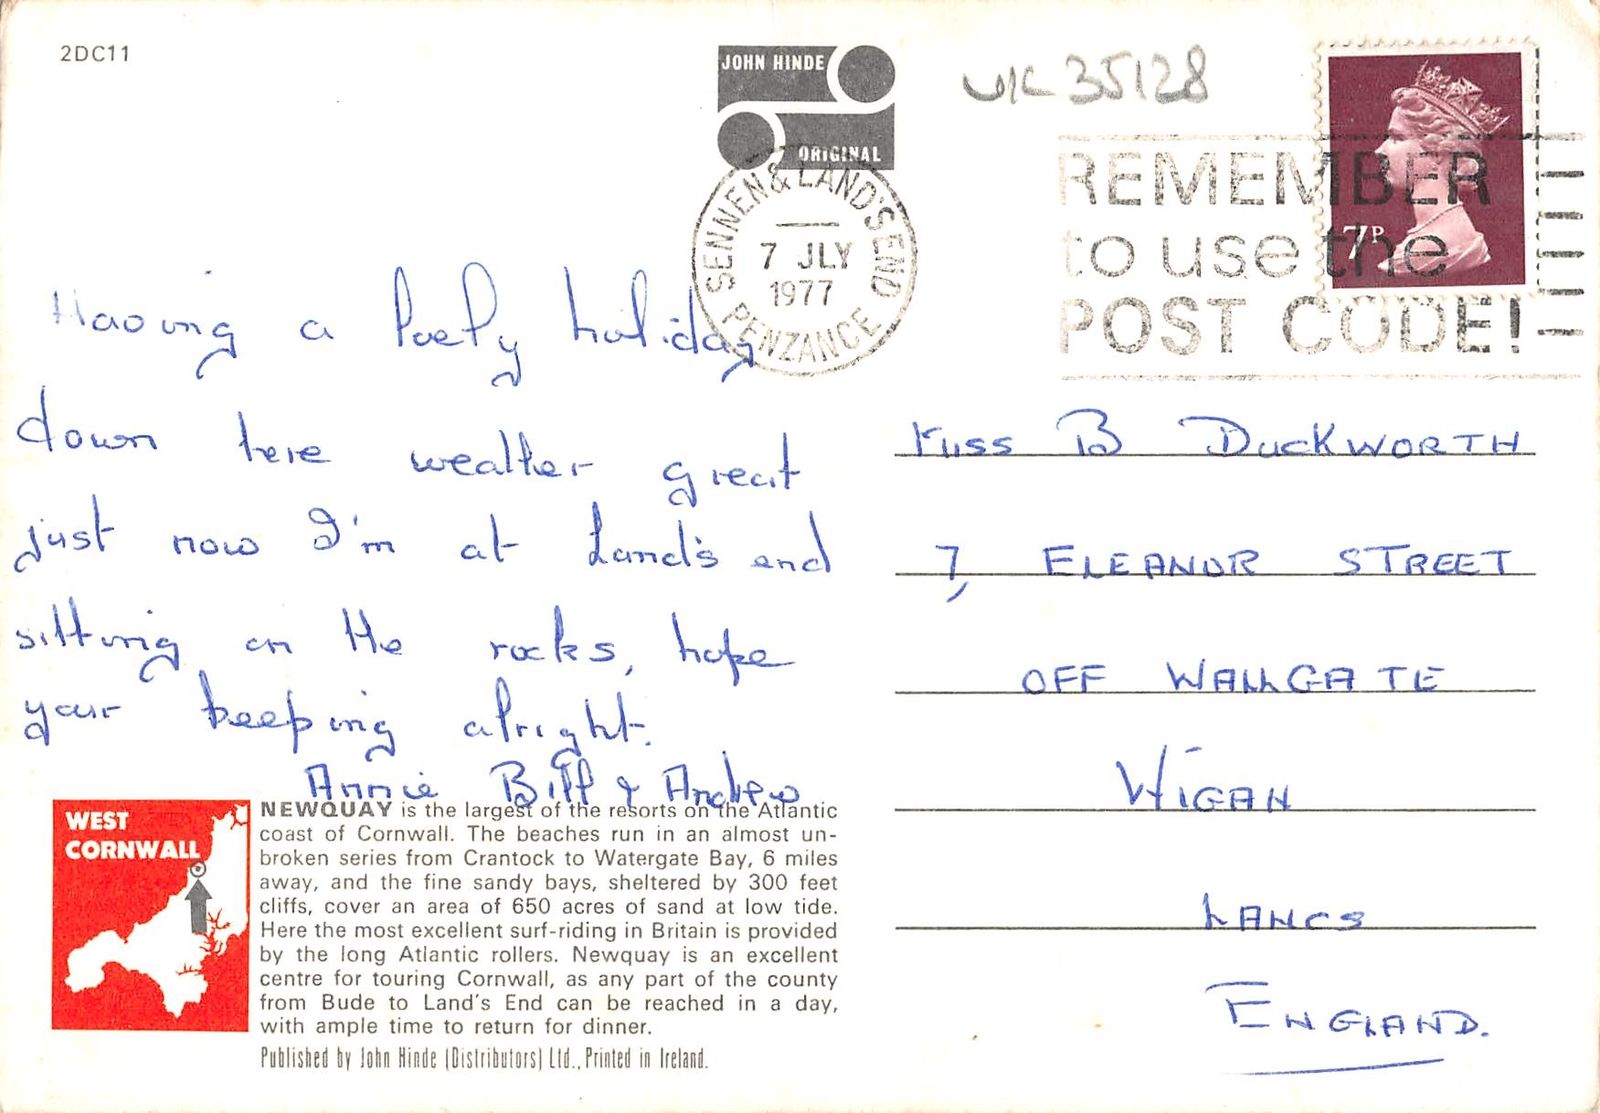 2DC11
JOHN HINDE
ORIGINAL
UK 35128
SENNEN & LAND'S END
7 JLY
1977
PENZANCE
REMEMBER
to use the
POST CODE!
7P
Having a lovely holiday
down here weather great
just now I'm at Land's end
sitting on the rocks, hope
your keeping alright.
Annie Bill & Andrew
Miss B DUCKWORTH
7, ELEANOR STREET
OFF WALLGATE
WIGAN
LANCS
ENGLAND.
WEST
CORNWALL
NEWQUAY is the largest of the resorts on the Atlantic
coast of Cornwall. The beaches run in an almost un-
broken series from Crantock to Watergate Bay, 6 miles
away, and the fine sandy bays, sheltered by 300 feet
cliffs, cover an area of 650 acres of sand at low tide.
Here the most excellent surf-riding in Britain is provided
by the long Atlantic rollers. Newquay is an excellent
centre for touring Cornwall, as any part of the county
from Bude to Land's End can be reached in a day,
with ample time to return for dinner.
Published by John Hinde (Distributors) Ltd., Printed in Ireland.